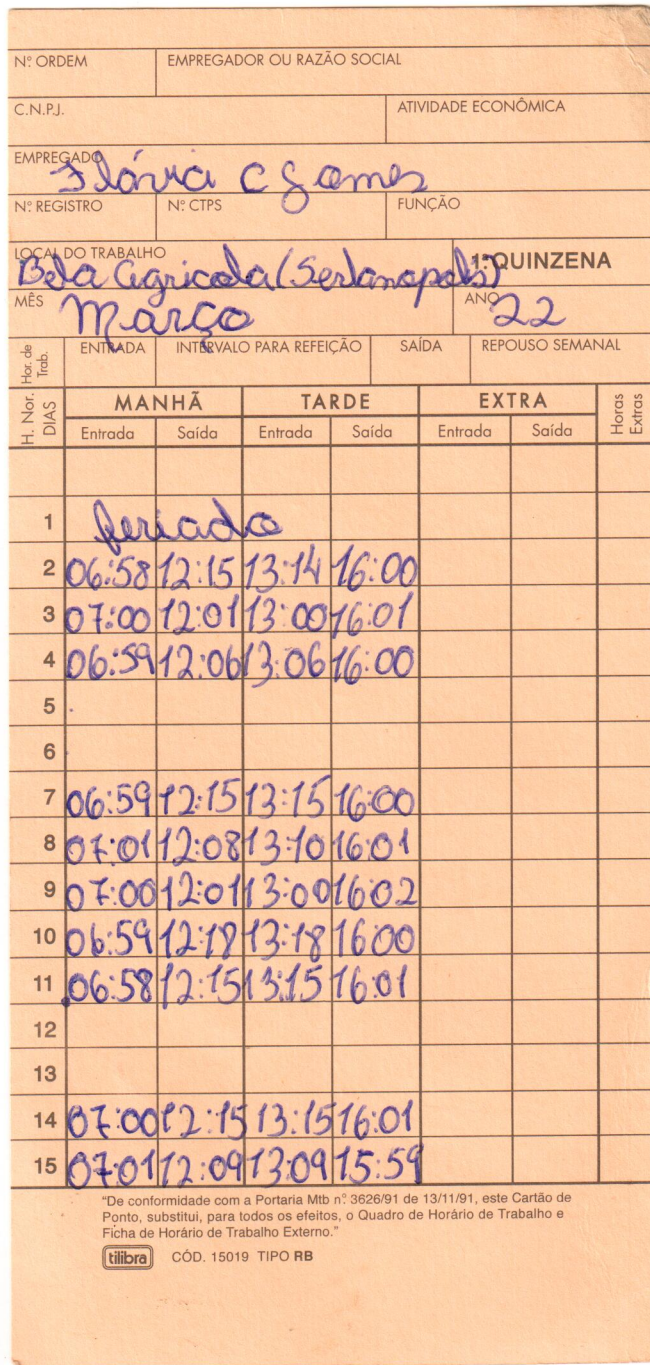 Nº ORDEM EMPREGADOR OU RAZÃO SOCIAL
C.N.P.J. ATIVIDADE ECONÔMICA
EMPREGADO Flávia C Gomes
Nº REGISTRO Nº CTPS FUNÇÃO
LOCAL DO TRABALHO 1ª QUINZENA
Bela Agricola (Sertanopolis)
MÊS Março ANO 22
Hor. de Trab. ENTRADA INTERVALO PARA REFEIÇÃO SAÍDA REPOUSO SEMANAL
H. Nor. DIAS MANHÃ TARDE EXTRA Horas Extras
Entrada Saída Entrada Saída Entrada Saída
1 feriado
2 06:58 12:15 13:14 16:00
3 07:00 12:01 13:00 16:01
4 06:59 12:06 13:06 16:00
5
6
7 06:59 12:15 13:15 16:00
8 07:01 12:08 13:10 16:01
9 07:00 12:01 13:00 16:02
10 06:59 12:18 13:18 16:00
11 06:58 12:15 13:15 16:01
12
13
14 07:00 12:15 13:15 16:01
15 07:01 12:09 13:09 15:59
"De conformidade com a Portaria Mtb nº 3626/91 de 13/11/91, este Cartão de
Ponto, substitui, para todos os efeitos, o Quadro de Horário de Trabalho e
Ficha de Horário de Trabalho Externo."
tilibra CÓD. 15019 TIPO RB